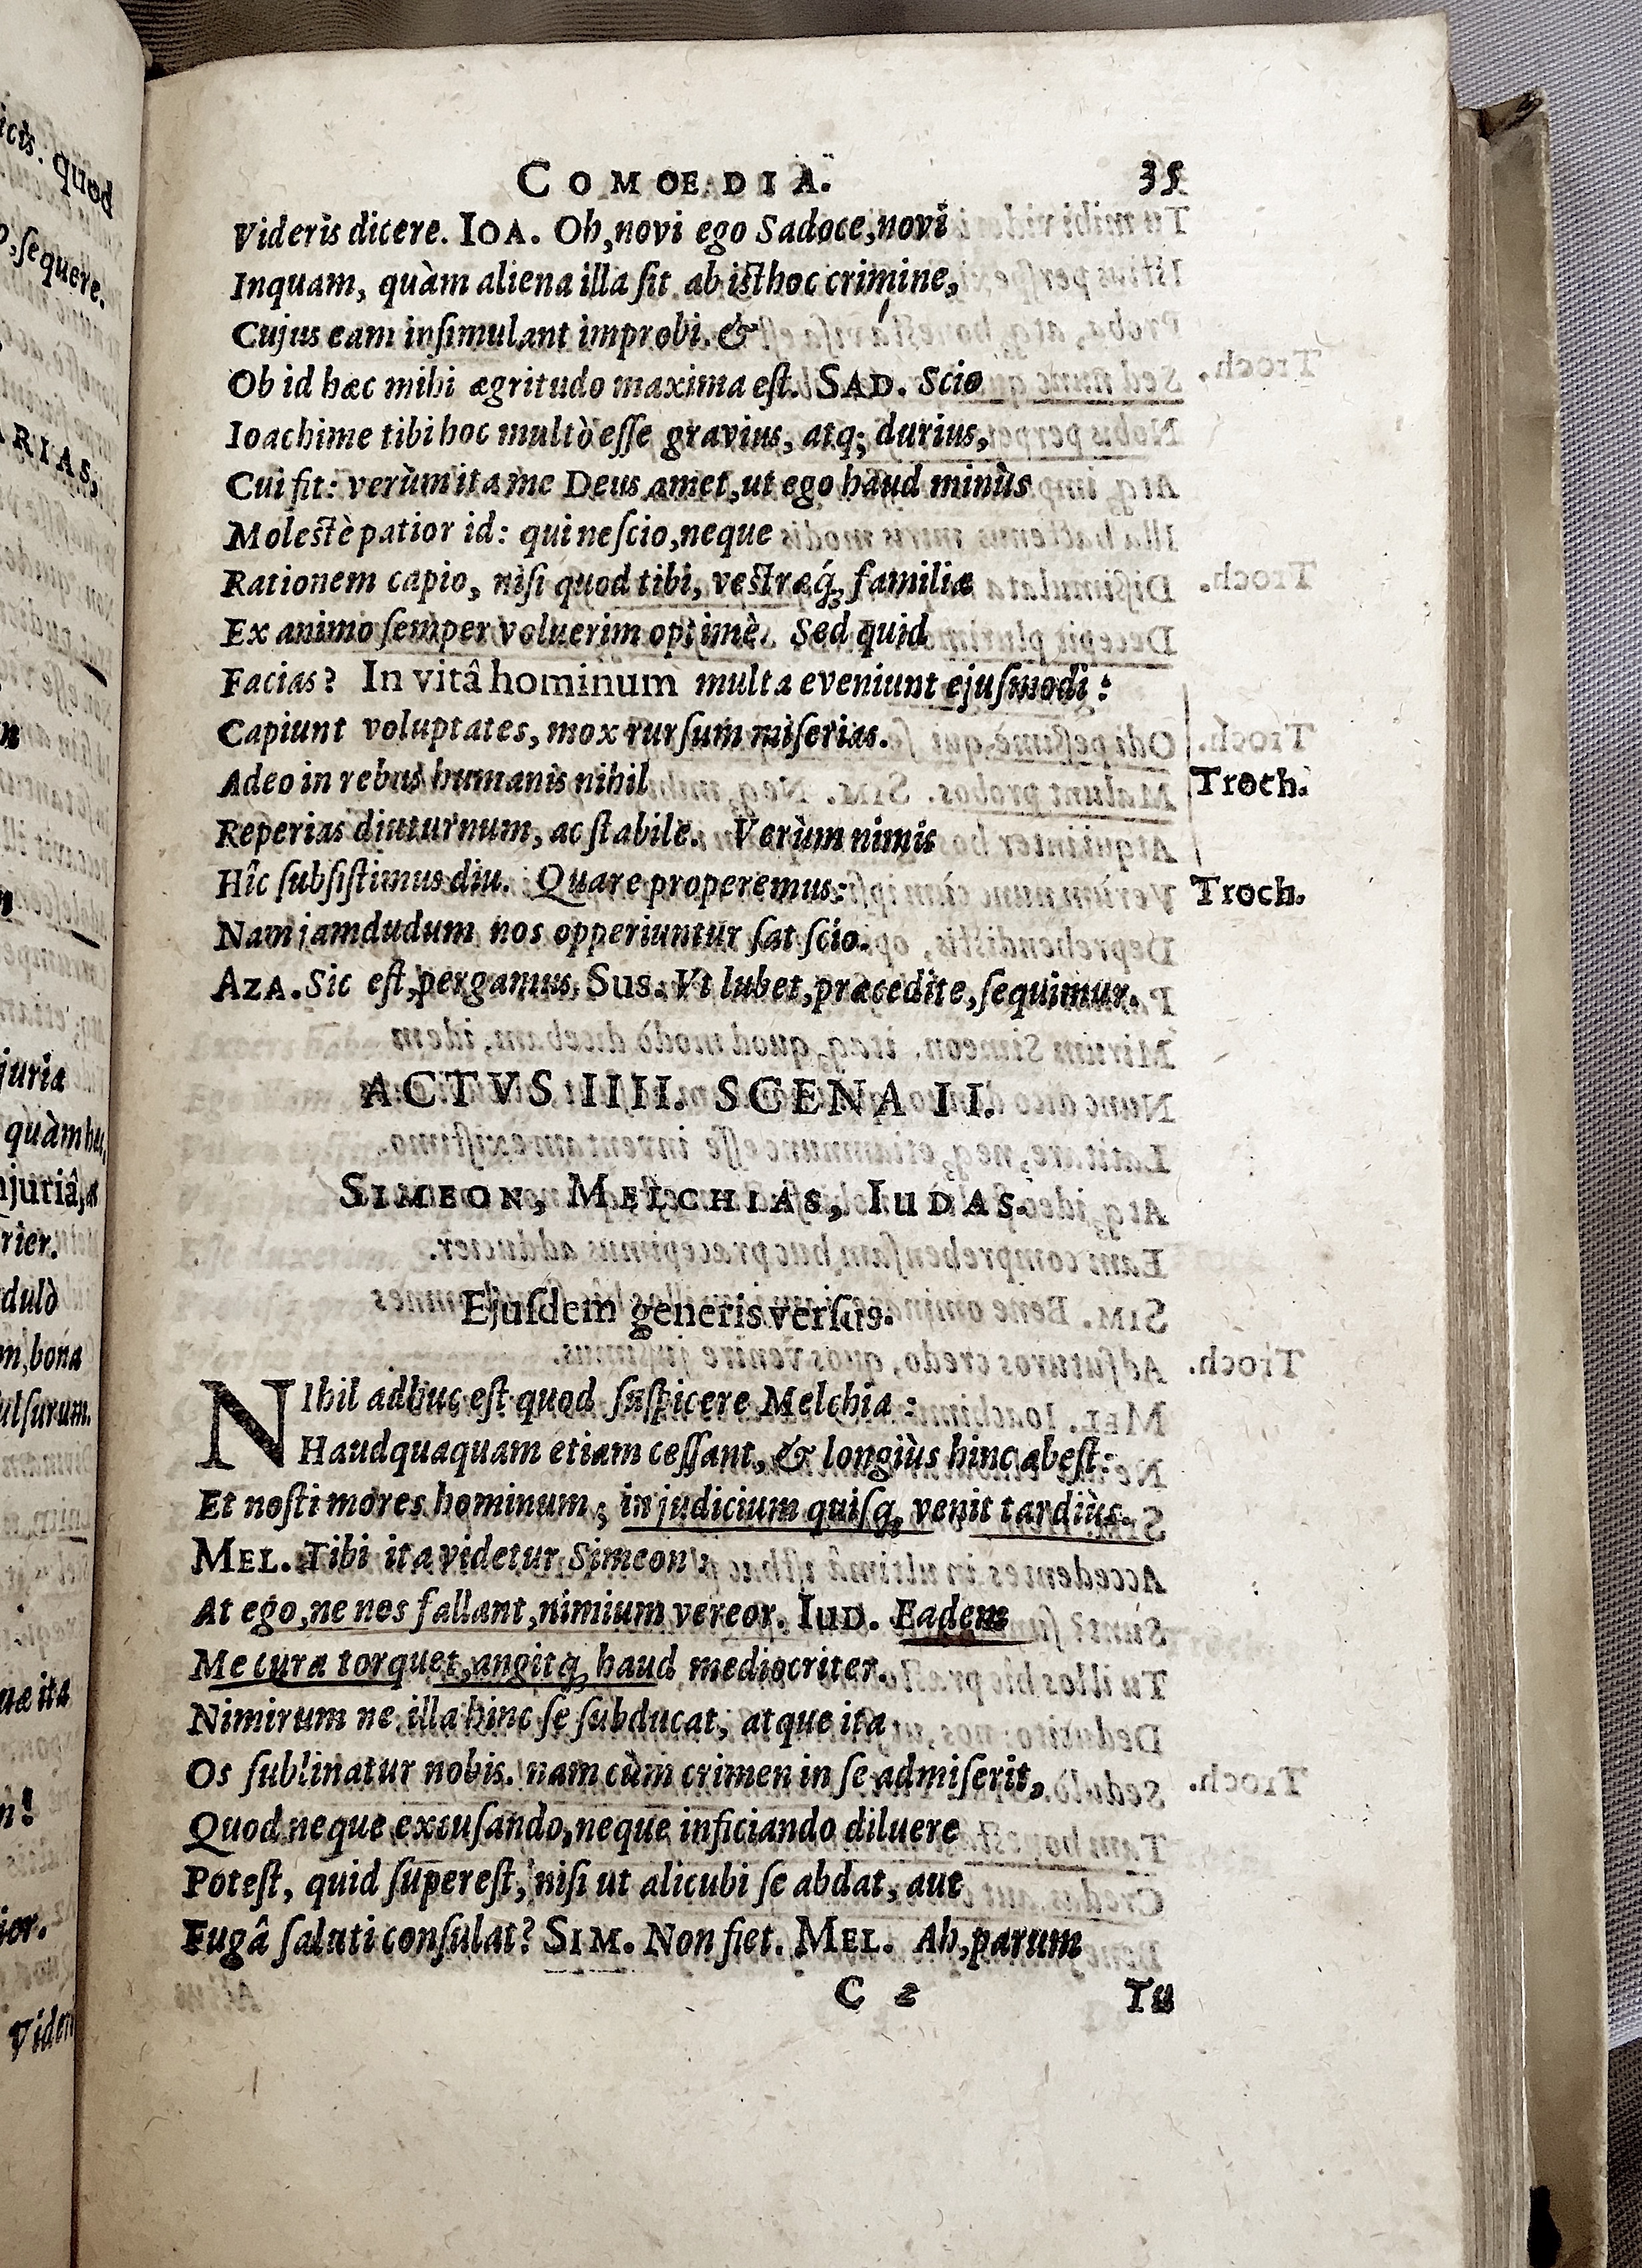 COMOEDIA. 35
Videris dicere. IOA. Oh, novi ego Sadoce, novi
Inquam, quàm aliena illa ſit ab iſthoc crimine,
Cujus eam inſimulant improbi. &
Ob id hæc mihi ægritudo maxima eſt. SAD. Scio
Ioachime tibi hoc multò eſſe gravius, atq; durius,
Cui fit: verùm ita me Deus amet, ut ego haud minùs
Moleſtè patior id: qui neſcio, neque
Rationem capio, niſi quod tibi, veſtræq́; familiæ
Ex animo ſemper voluerim optimè. Sed quid
Facias? In vitâ hominum multa eveniunt ejuſmodi:
Capiunt voluptates, mox rurſum miſerias.
Adeo in rebus humanis nihil Troch.
Reperias diuturnum, ac ſtabile. Verùm nimis
Hîc ſubſiſtimus diu. Quare properemus: Troch.
Nam jamdudum nos opperiuntur ſat ſcio.
AZA. Sic eſt, pergamus. SUS. Vt lubet, præcedite, ſequimur.
ACTVS IIII. SCENA II.
SIMEON, MELCHIAS, IUDAS.
Ejuſdem generis verſus.
NIhil adhuc eſt quod ſuſpicere Melchia:
Haudquaquam etiam ceſſant, & longiùs hinc abeſt:
Et noſti mores hominum, in judicium quiſq; venit tardiùs.
MEL. Tibi ita videtur Simeon:
At ego, ne nos fallant, nimium vereor. IUD. Eadem
Me cura torquet, angitq; haud mediocriter.
Nimirum ne illa hinc ſe ſubducat, atque ita
Os ſublinatur nobis. nam cùm crimen in ſe admiſerit,
Quod neque excuſando, neque inficiando diluere
Poteſt, quid ſupereſt, niſi ut alicubi ſe abdat, aut
Fugâ ſaluti conſulat? SIM. Non fiet. MEL. Ah, parum
C 2 Tu